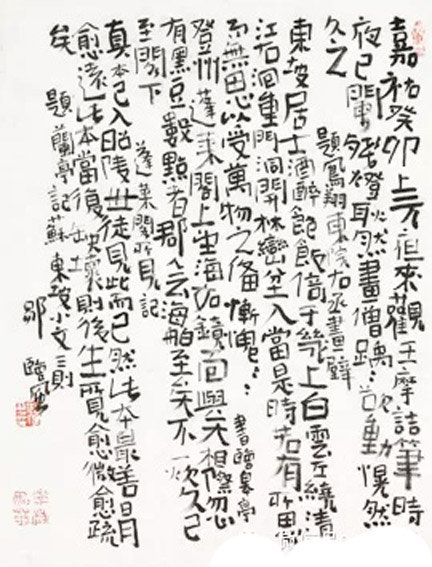 嘉祐癸卯上元夜來觀王摩詰筆時
夜已闌殘燈耿然畫僧踽〻欲動恍然
久之 題鳳翔東院右丞畫壁
東坡居士酒醉飯飽倚于几上白雲左繞清
江右洄重門洞開林巒坌入當是時若有所思
而無思以受萬物之備慚愧〻〻 書臨皋亭
登州蓬萊閣上望海如鏡面與天相際忽
有黑豆數點者郡人云海舶至矣不一炊久已
至閣下 蓬萊閣所見記
真本已入昭陵世徒見此而已然此本最善日月
愈遠此本當復缺壞則後生所見愈微愈疏
矣 題蘭亭記 蘇東坡小文三則
鄒